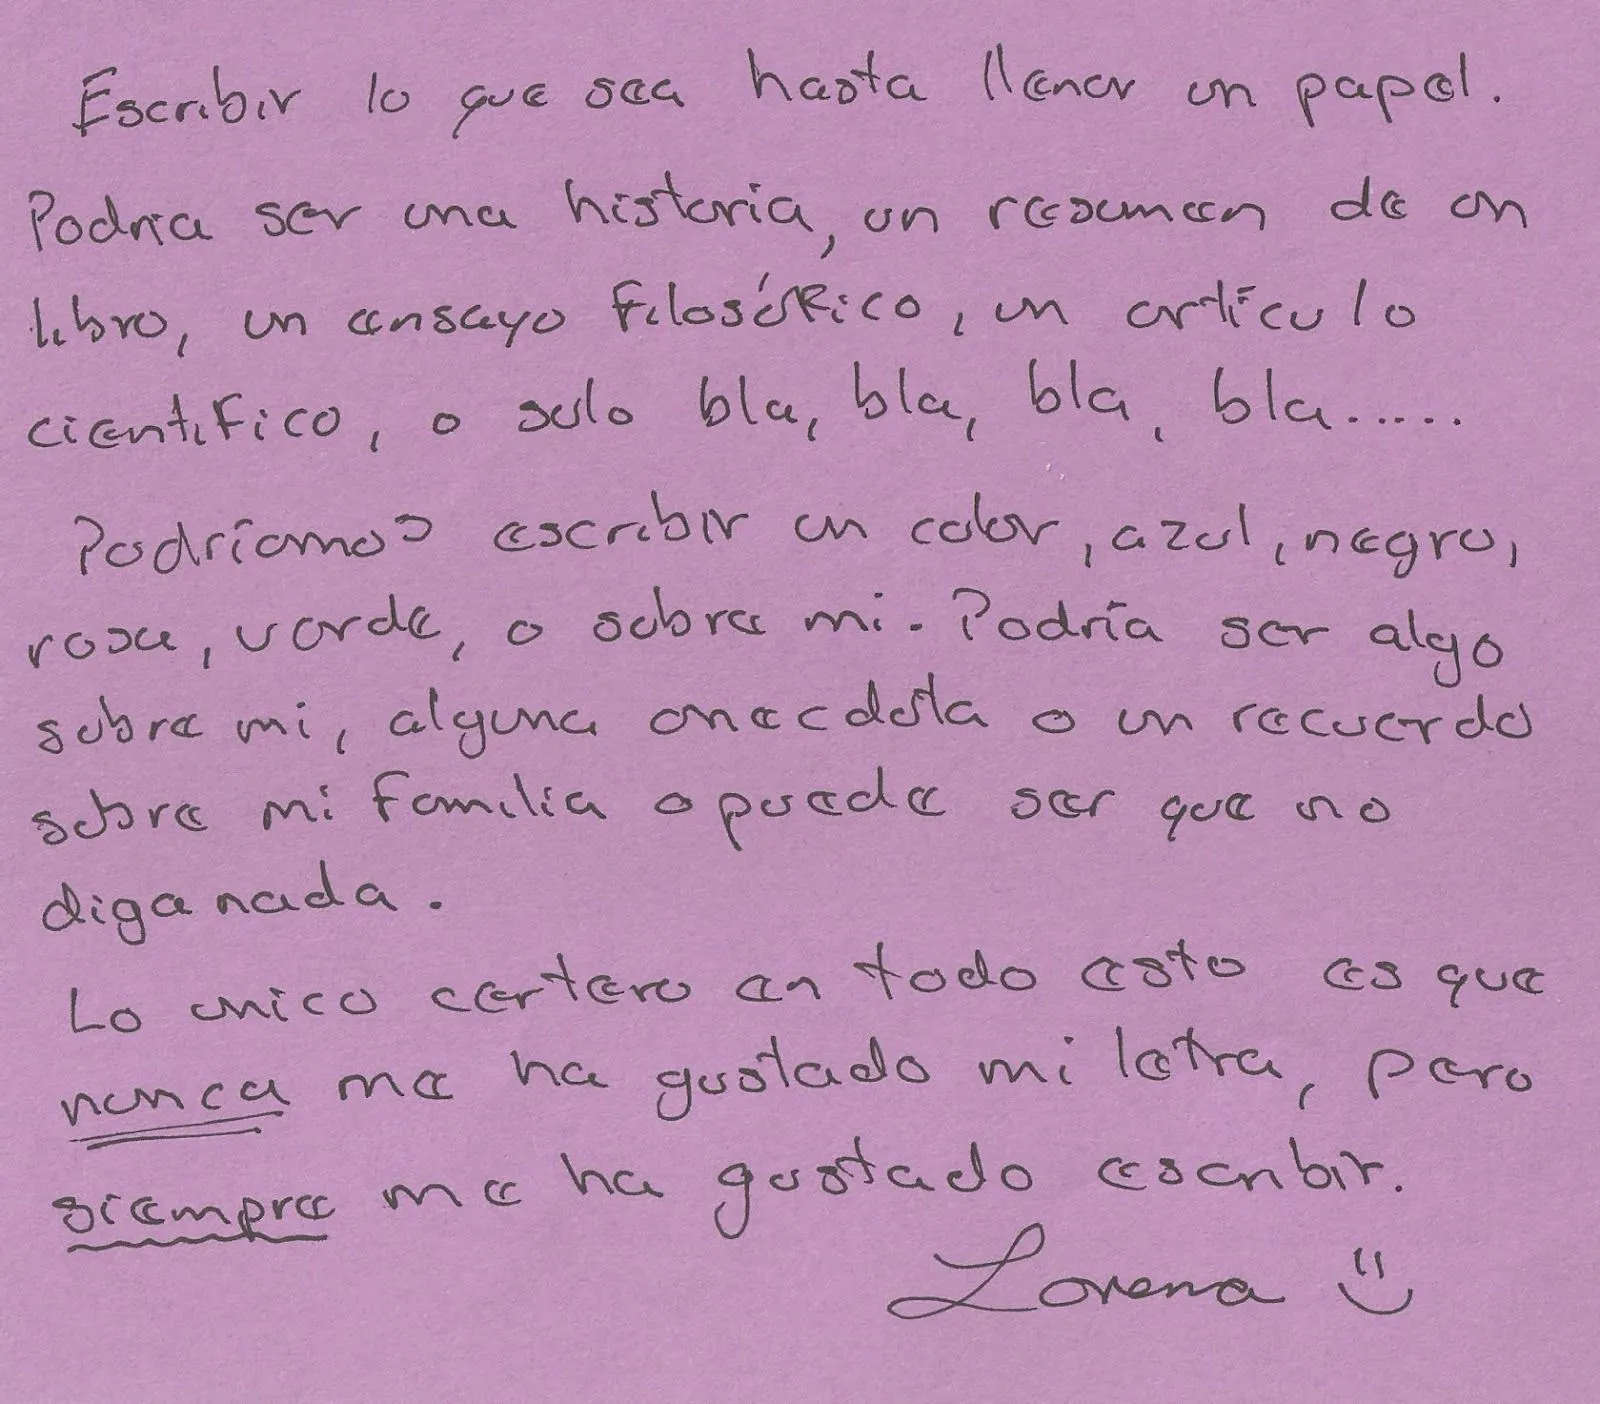 Escribir lo que sea hasta llenar un papel.
Podría ser una historia, un resumen de un
libro, un ensayo filosófico, un artículo
científico, o solo bla, bla, bla, bla......
Podríamos escribir un color, azul, negro,
rosa, verde, o sobre mi. Podría ser algo
sobre mi, alguna anecdota o un recuerdo
sobre mi familia o puede ser que no
diga nada.
Lo unico certero en todo esto es que
nunca me ha gustado mi letra, pero
siempre me ha gustado escribir.
Lorena